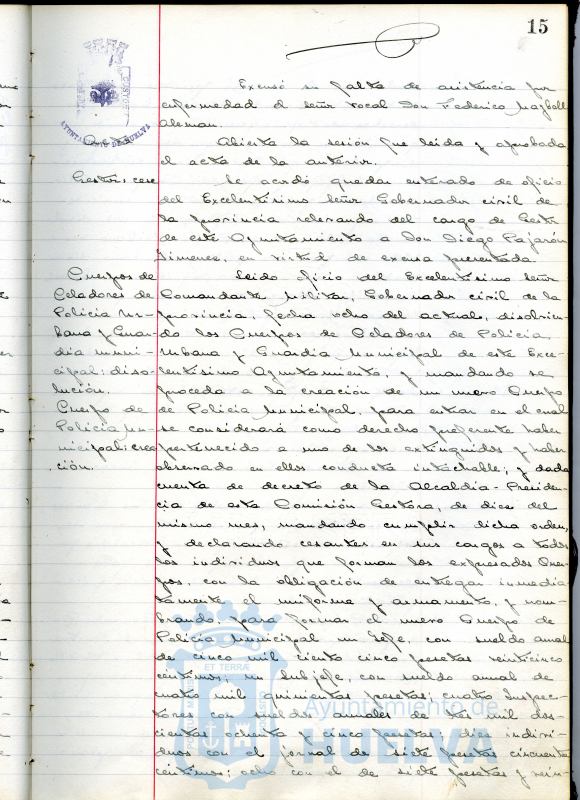 15
Excusó su falta de asistencia por
enfermedad el señor vocal Don Federico
Alemán.
AYUNTAMIENTO DE HUELVA
Acta
Abierta la sesión fue leída y aprobada
el acta de la anterior.
Gestor: cese
Se acordó quedar enterado de oficio
del Excelentísimo Señor Gobernador civil de
la provincia relevando del cargo de Gestor
de este Ayuntamiento a Don Diego Pajarón
Jimenez, en virtud de excusa presentada.
Cuerpos de
Celadores de
Policía Ur-
bana y Guar-
dia muni-
cipal: diso-
lución.
Cuerpo de
Policía mu-
nicipal: crea
ción.
Leido oficio del Excelentísimo Señor
Comandante Militar, Gobernador civil de la
provincia, fecha ocho del actual, disolvien-
do los Cuerpos de Celadores de Policía
Urbana y Guardia Municipal de este Exce-
lentísimo Ayuntamiento, y mandando se
proceda a la creación de un nuevo Cuerpo
de Policía Municipal, para entrar en el cual
se considerará como derecho preferente haber
pertenecido a uno de los extinguidos y haber
observado en ellos conducta intachable; y dada
cuenta de decreto de la Alcaldía-Presiden-
cia de esta Comisión Gestora, de diez del
mismo mes, mandando cumplir dicha orden,
y declarando cesantes en sus cargos a todos
los individuos que forman los expresados Cuer-
pos, con la obligación de entregar inmedia-
tamente el uniforme y armamento, y nom-
brando, para formar el nuevo Cuerpo de
Policía Municipal un Jefe, con sueldo anual
de cinco mil ciento cinco pesetas veinticinco
centimos; un Subjefe, con sueldo anual de
cuatro mil quinientas pesetas; cuatro Inspec-
tores con sueldos anuales de tres mil dos-
cientas ochenta y cinco pesetas; diez indivi-
duos con el jornal de siete pesetas cincuenta
centimos; ocho con el de siete pesetas y vein-
Ayuntamiento de
HUELVA